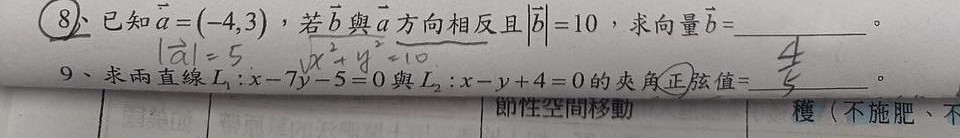 8、已知 a⃗ = (−4,3)，若 b⃗ 與 a⃗ 方向相反且 |b⃗| = 10，求向量 b⃗ = ________。
|a⃗| = 5 √x²+y² = 10 4/5
9、求兩直線 L₁ : x − 7y − 5 = 0 與 L₂ : x − y + 4 = 0 的夾角正弦值= ________。
節性空間移動 穫（不施肥、不